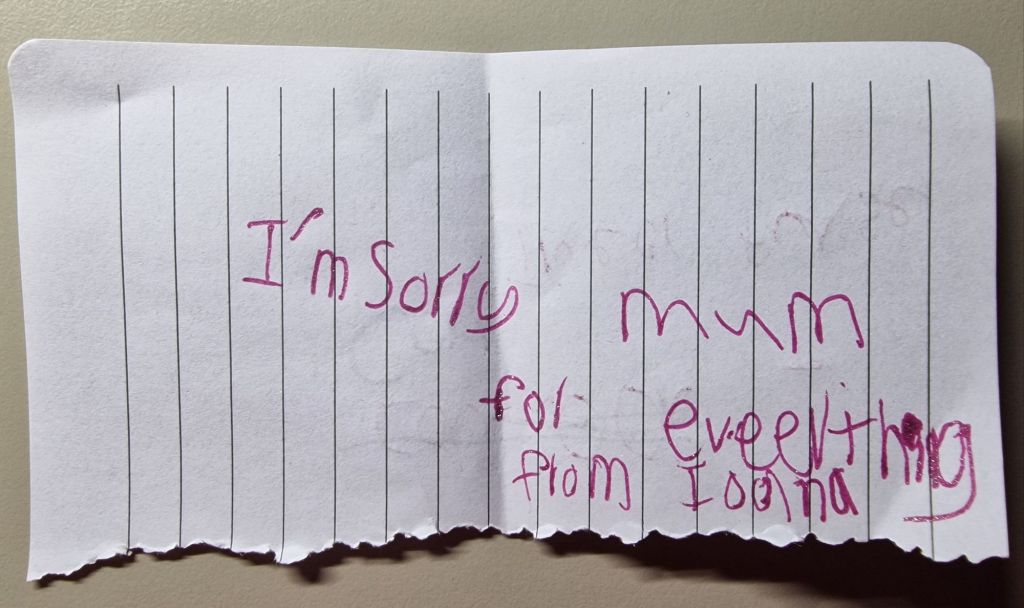 I'm Sorry mum
for eveerything
from Ioanna